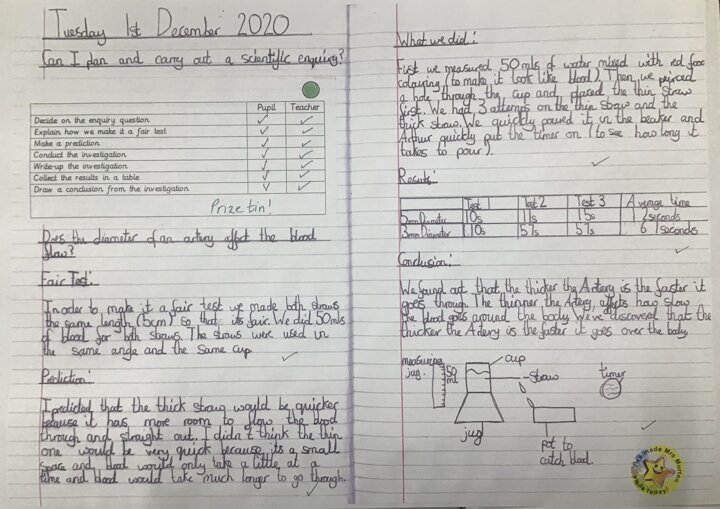 Tuesday 1st December 2020
Can I plan and carry out a scientific enquiry?
Pupil Teacher
Decide on the enquiry question ✓ ✓
Explain how we make it a fair test ✓ ✓
Make a prediction ✓ ✓
Conduct the investigation ✓ ✓
Write-up the investigation ✓ ✓
Collect the results in a table ✓ ✓
Draw a conclusion from the investigation ✓ ✓
Prize tin!
Does the diameter of an artery affect the blood
flow?
Fair Test:
In order to make it a fair test we made both straws
the same length (5cm) so that its fair. We did 50mls
of blood for both straws. The straws were used in
the same angle and the same cup.
Prediction:
I predicted that the thick straw would be quicker
because it has more room to flow the blood
through and straight out. I didn't think the thin
one would be very quick because its a small
space and blood would only take a little at a
time and blood would take much longer to go through.
What we did:
First we measured 50mls of water mixed with red food
colouring (to make it look like blood). Then we pierced
a hole through the cup and placed the thin straw
first. We had 3 attemps on the thin straw and the
thick straw. We quickly poured it in the beaker and
Arthur quickly put the timer on (to see how long it
takes to pour).
Results:
Test 1 Test 2 Test 3 Average time
5mm Diameter 10s 11s 15s 12seconds
3mm Diameter 1.10s 57s 57s 61seconds
Conclusion:
We found out that the thicker the Artery is the faster it
goes through. The thinner the Artery, affects how slow
the blood goes around the body. We've discovered that the
thicker the Artery is the faster it goes over the body
measuring
jug.
50
mL
cup
straw
timer
jug
pot to
catch blood.
I've made Mrs Murton
smile today!